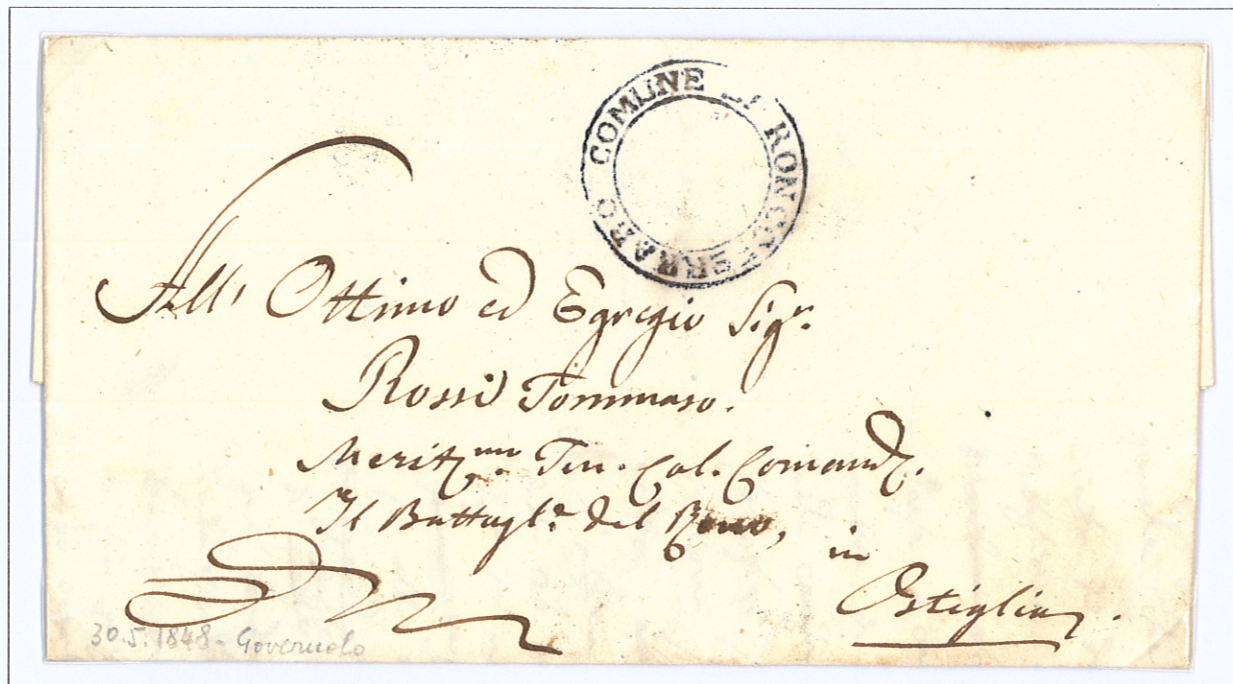 COMUNE DI RONCOFERRARO
All' Ottimo ed Egregio Sigr.
Rossi Tommaso.
Meritmo. Ten. Col. Comandte.
Il Battagle. del Reno,
in
Ostiglia.
30.5.1848 - Governolo